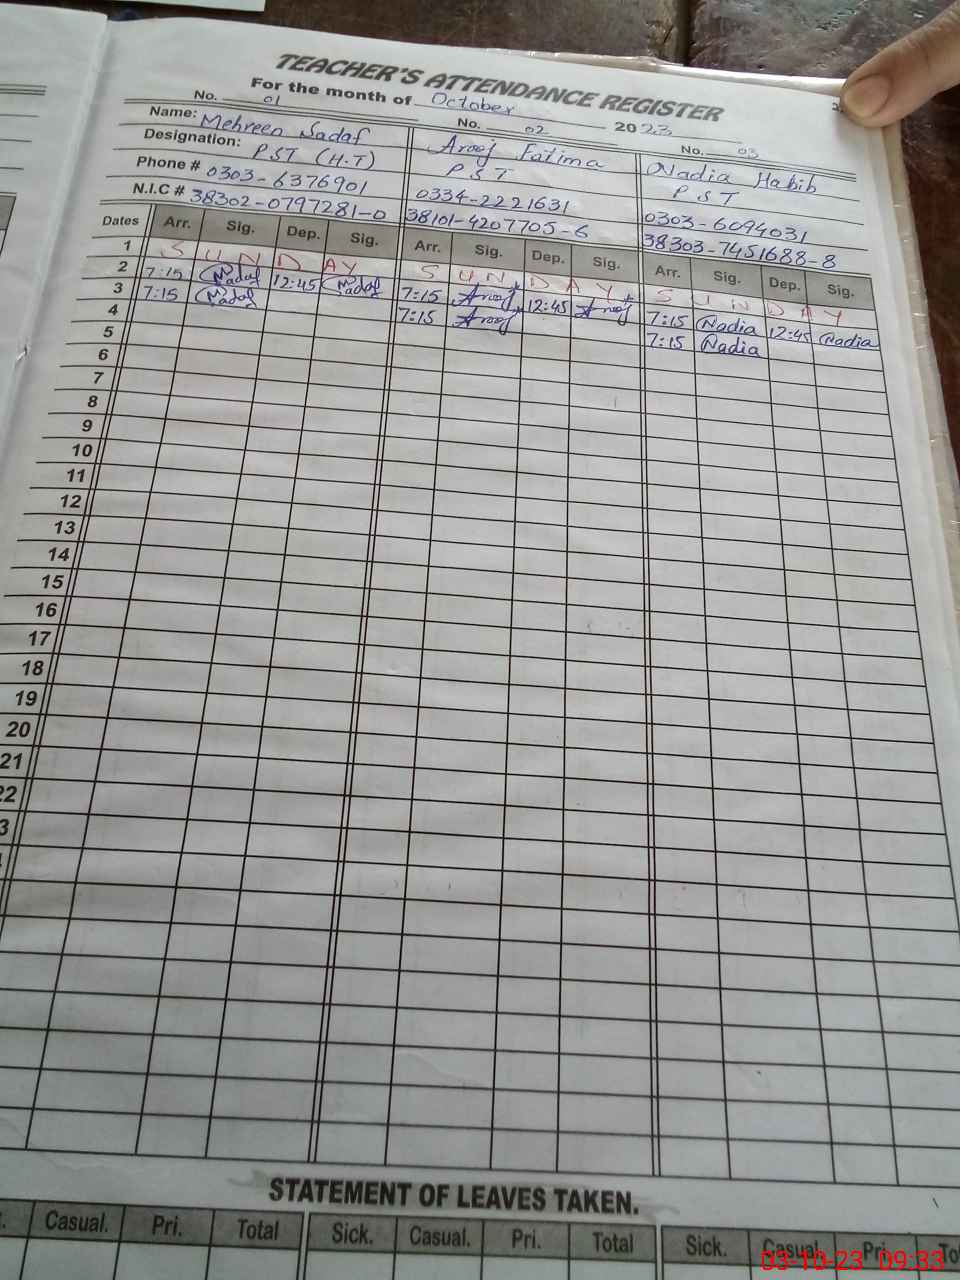 TEACHER'S ATTENDANCE REGISTER
For the month of October 2023
No. 01 No. 02 No. 03
Name: Mehreen Sadaf Arooj Fatima Nadia Habib
Designation: PST (H.T) PST PST
Phone # 0303-6376901 0334-2221631 0303-6094031
N.I.C # 38302-0797281-0 38101-4207705-6 38303-7451688-8
Dates Arr. Sig. Dep. Sig. Arr. Sig. Dep. Sig. Arr. Sig. Dep. Sig.
1 SUNDAY SUNDAY SUNDAY
2 7:15 Sadaf 12:45 Sadaf 7:15 Arooj 12:45 Arooj 7:15 Nadia 12:45 Nadia
3 7:15 Sadaf 7:15 Arooj 7:15 Nadia
4
5
6
7
8
9
10
11
12
13
14
15
16
17
18
19
20
21
22
3
STATEMENT OF LEAVES TAKEN.
Casual. Pri. Total Sick. Casual. Pri. Total Sick. Casual. Pri. To
03-10-23 09:33